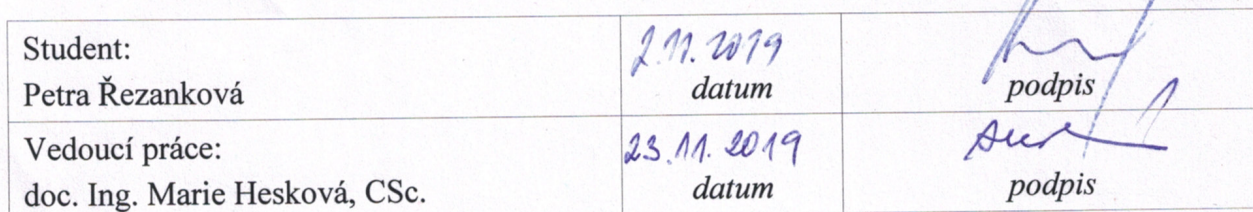 Student:
Petra Řezanková
2.11.2019
datum
podpis
Vedoucí práce:
doc. Ing. Marie Hesková, CSc.
23.11.2019
datum
podpis